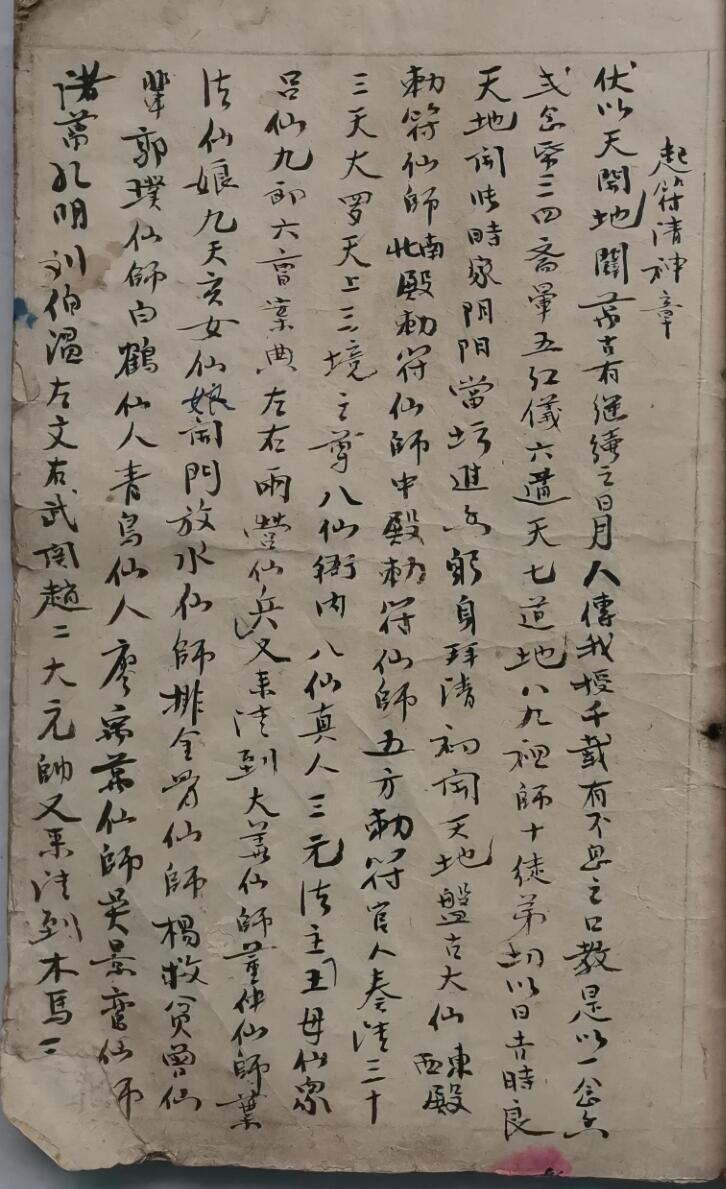 起符清神章
伏以天開地闢萬古有繼續之日月人傳我授千載有不息之口教是以一念
弍念琹三四斎暈五紅儀六遁天七道地八九祖師十徒弟切以日吉時良
天地開此時家阴阳當坛進香躬身拜清初開天地盤古大仙東殿西殿
勅符仙師南北殿勅符仙師中殿勅符仙師五方勅符官人奏清三十
三天大罗天上三境之尊八仙衙内八仙真人三元法主王母仙家
吕仙九郎六曹案典左右兩营仙兵又来清到大羙仙師董仲仙師葉
法仙娘九天玄女仙娘開門放水仙師排金骨仙師楊救贫曾仙
輩郭璞仙師白鶴仙人青烏仙人廖禹葉仙師吴景鸾仙师
諸葛孔明刘伯温左文右武関趙二大元帥又来清到木馬三